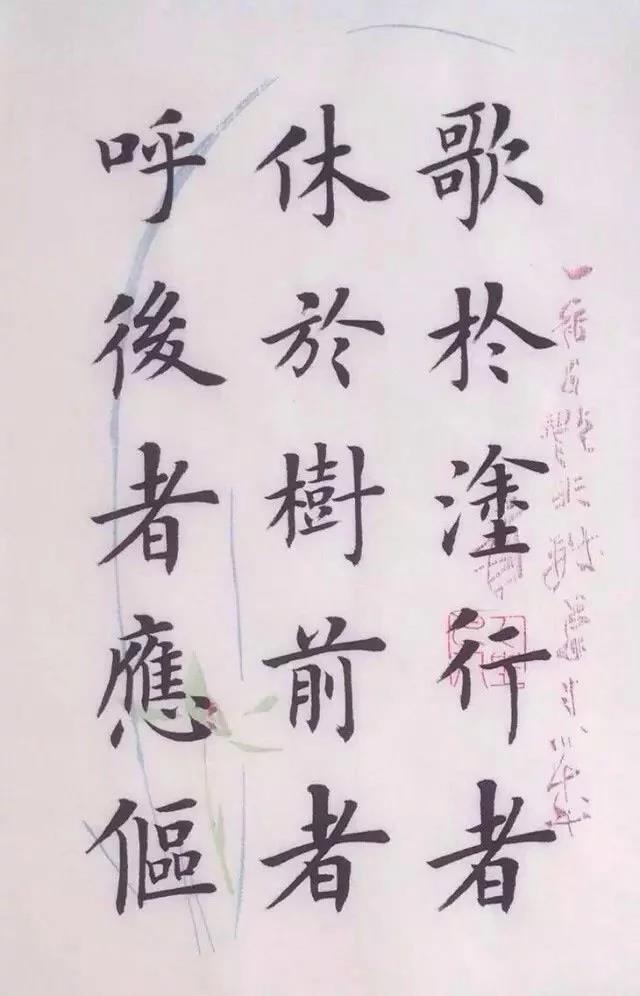 歌於塗行者
休於樹前者
呼後者應傴